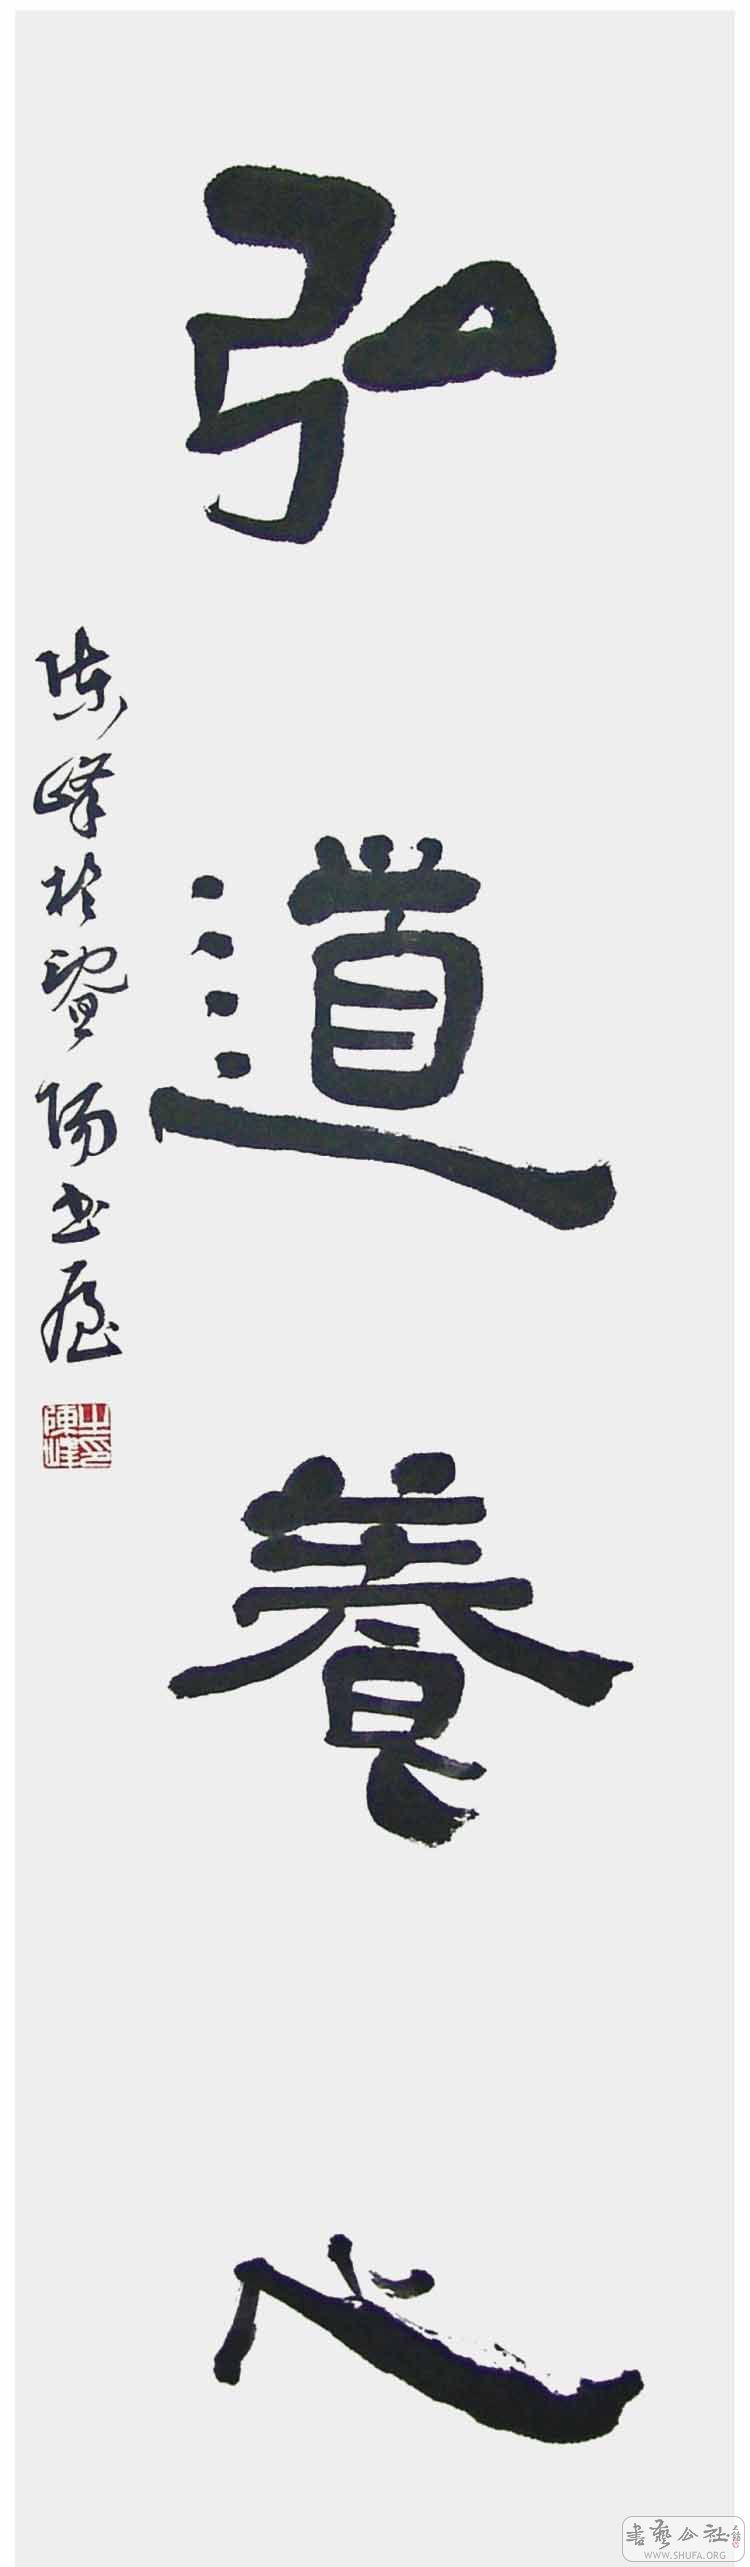 弘道養心
陳峰於暨陽書屋
陳峰之印
書藝公社
WWW.SHUFA.ORG